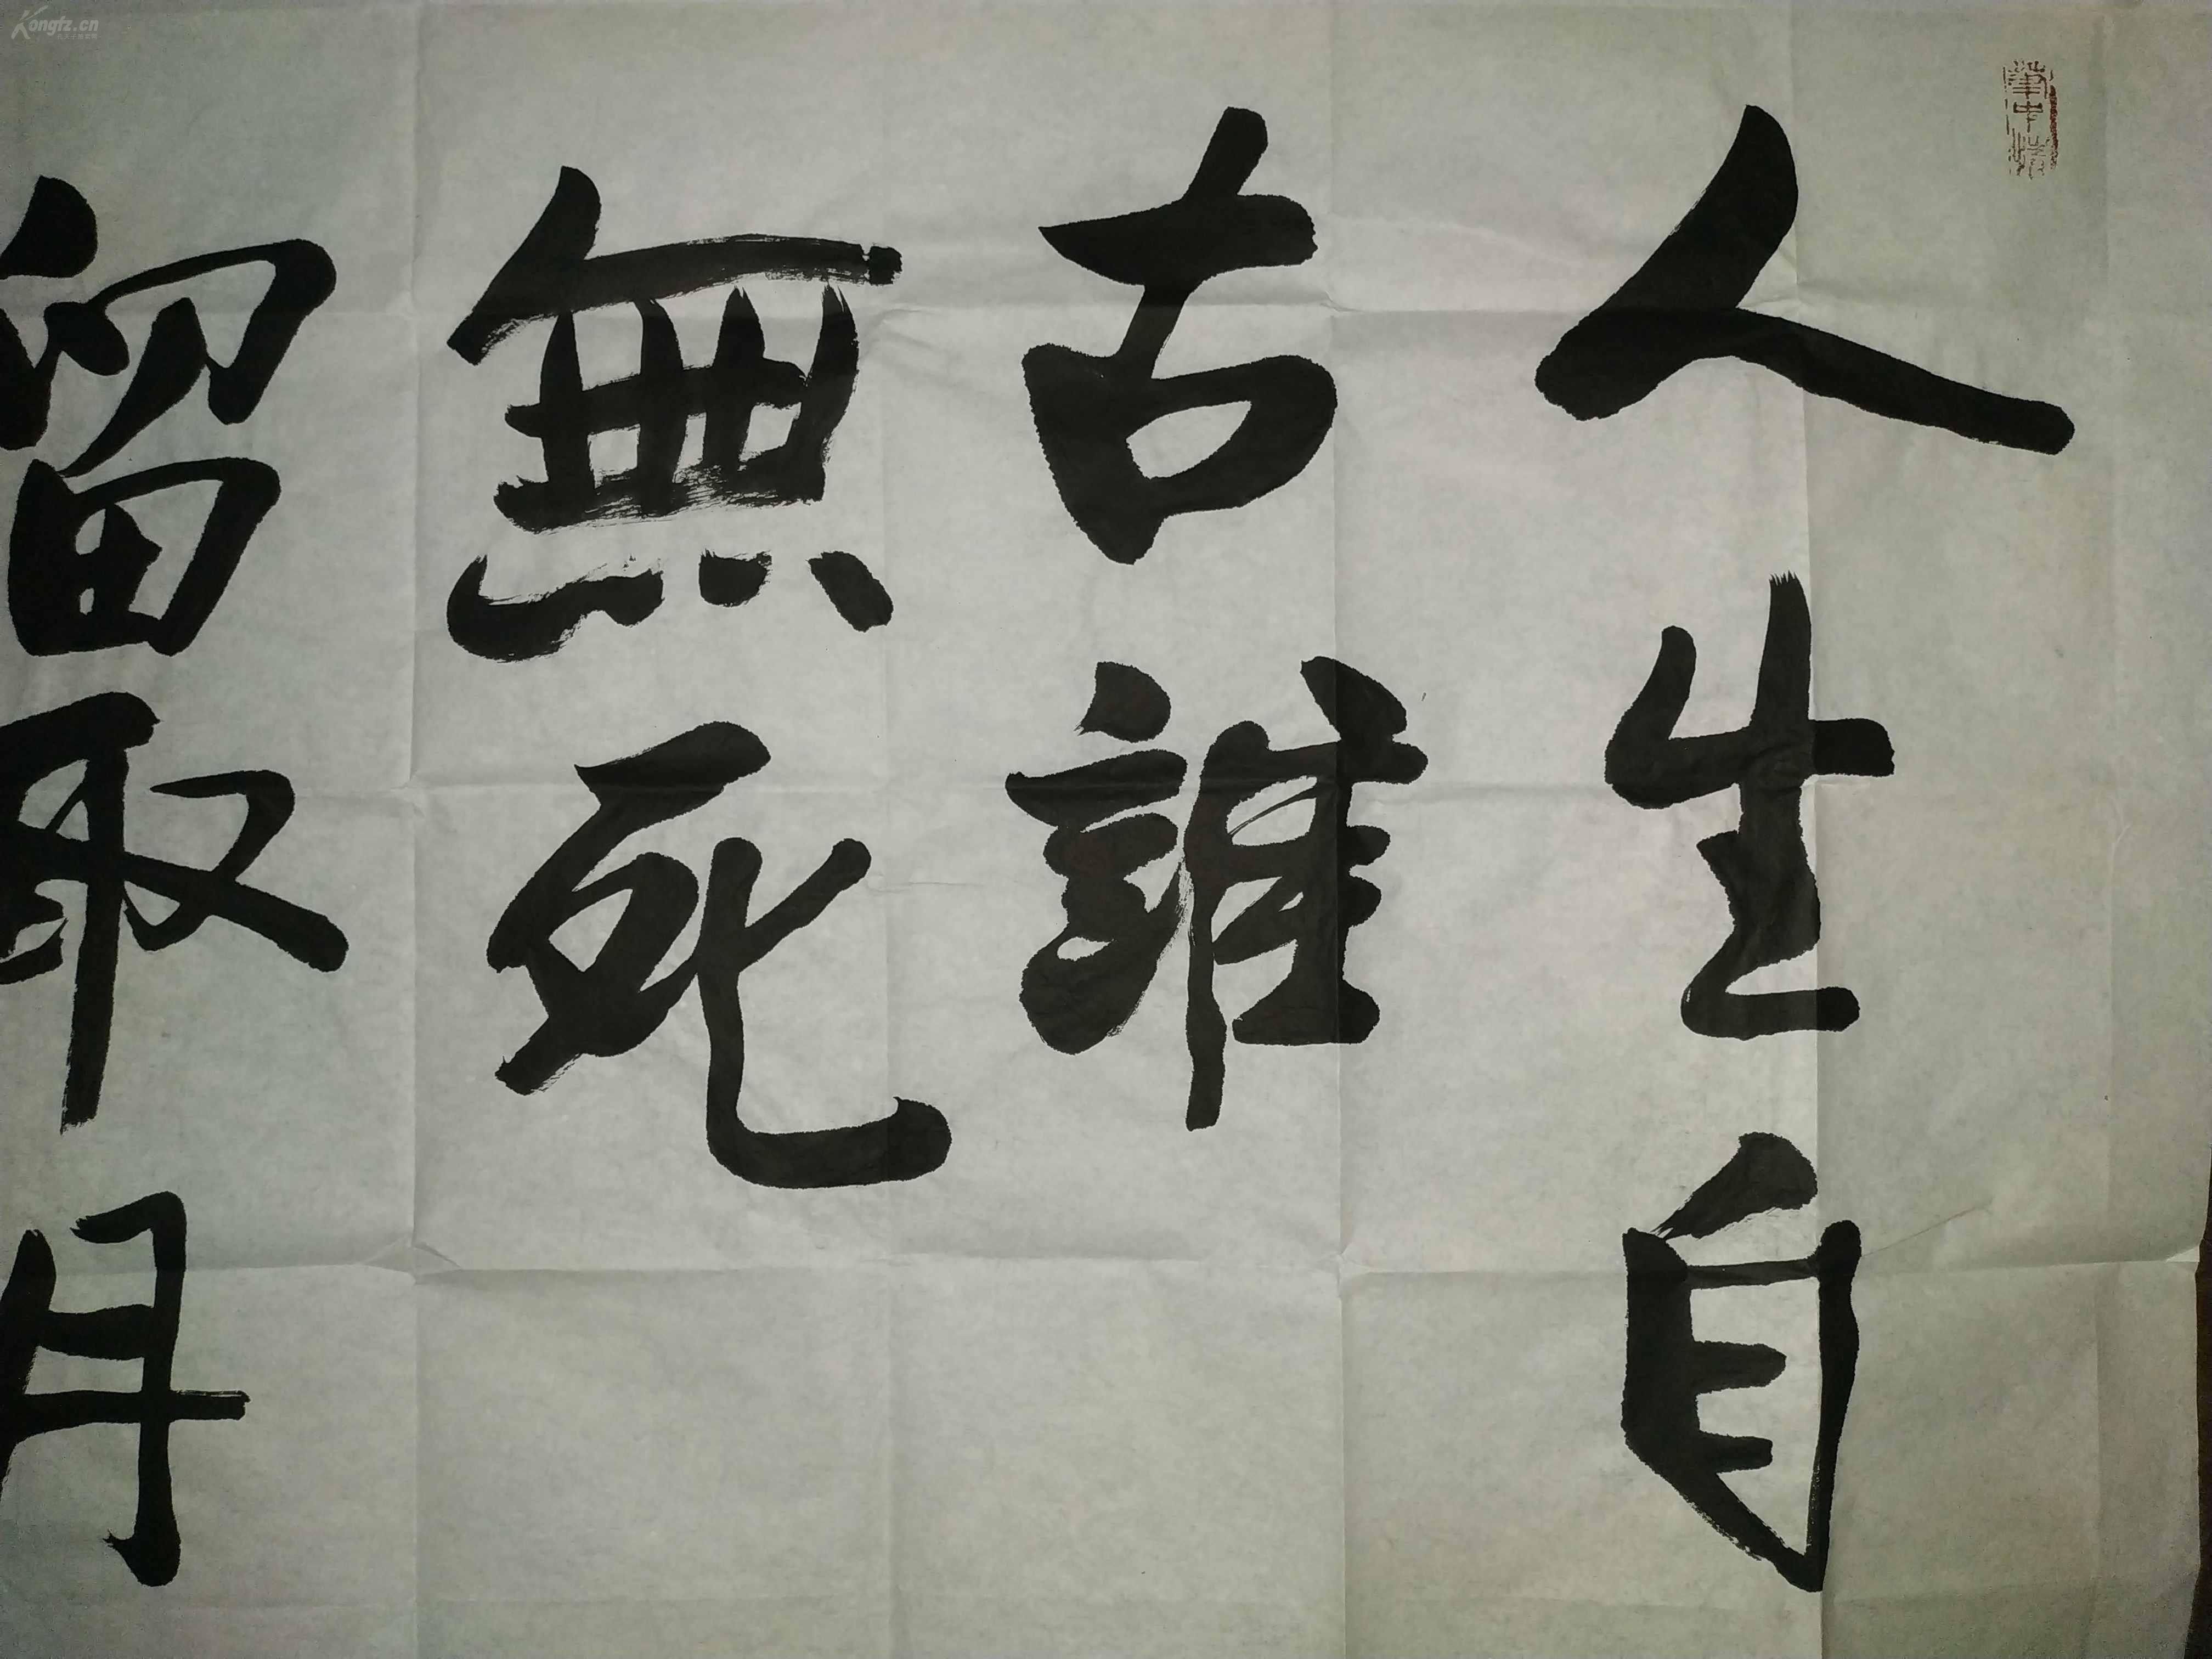 人生自
古誰
無死
留取丹
Kongfz.cn